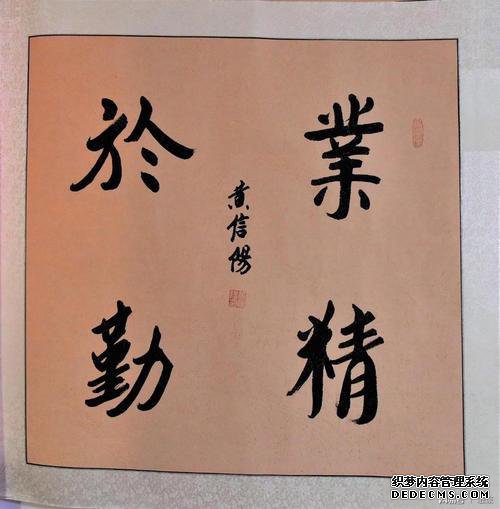 業精
於勤
黄信陽
织梦内容管理系统
DEDECMS.COM